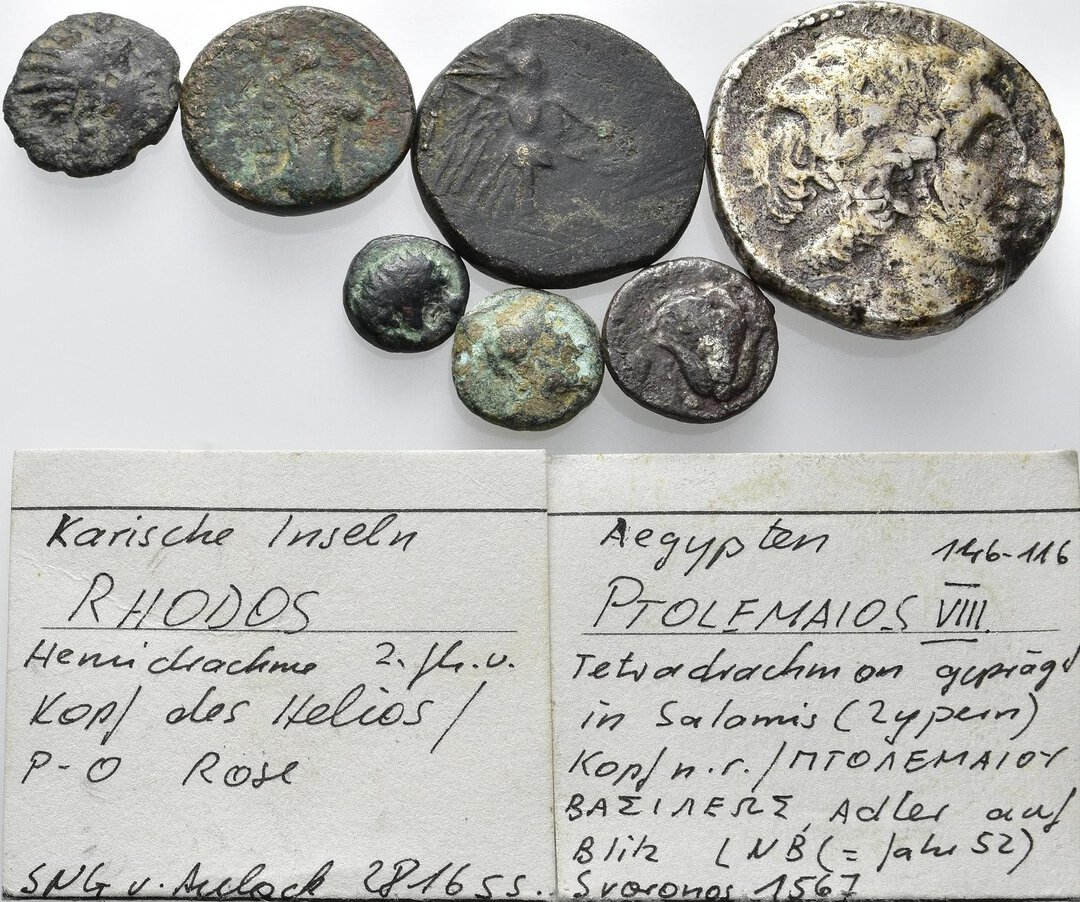 Karische Inseln
RHODOS
Hemidrachme 2. Jh. v.
Kopf des Helios /
P-O Rose
SNG v. Aulock 2816 ss.
Aegypten 146-116
PTOLEMAIOS VIII.
Tetradrachmon geprägt
in Salamis (Zypern)
Kopf n. r. / ΠΤΟΛΕΜΑΙΟΥ
ΒΑΣΙΛΕΩΣ, Adler auf
Blitz LNB (= Jahr 52)
Svoronos 1567